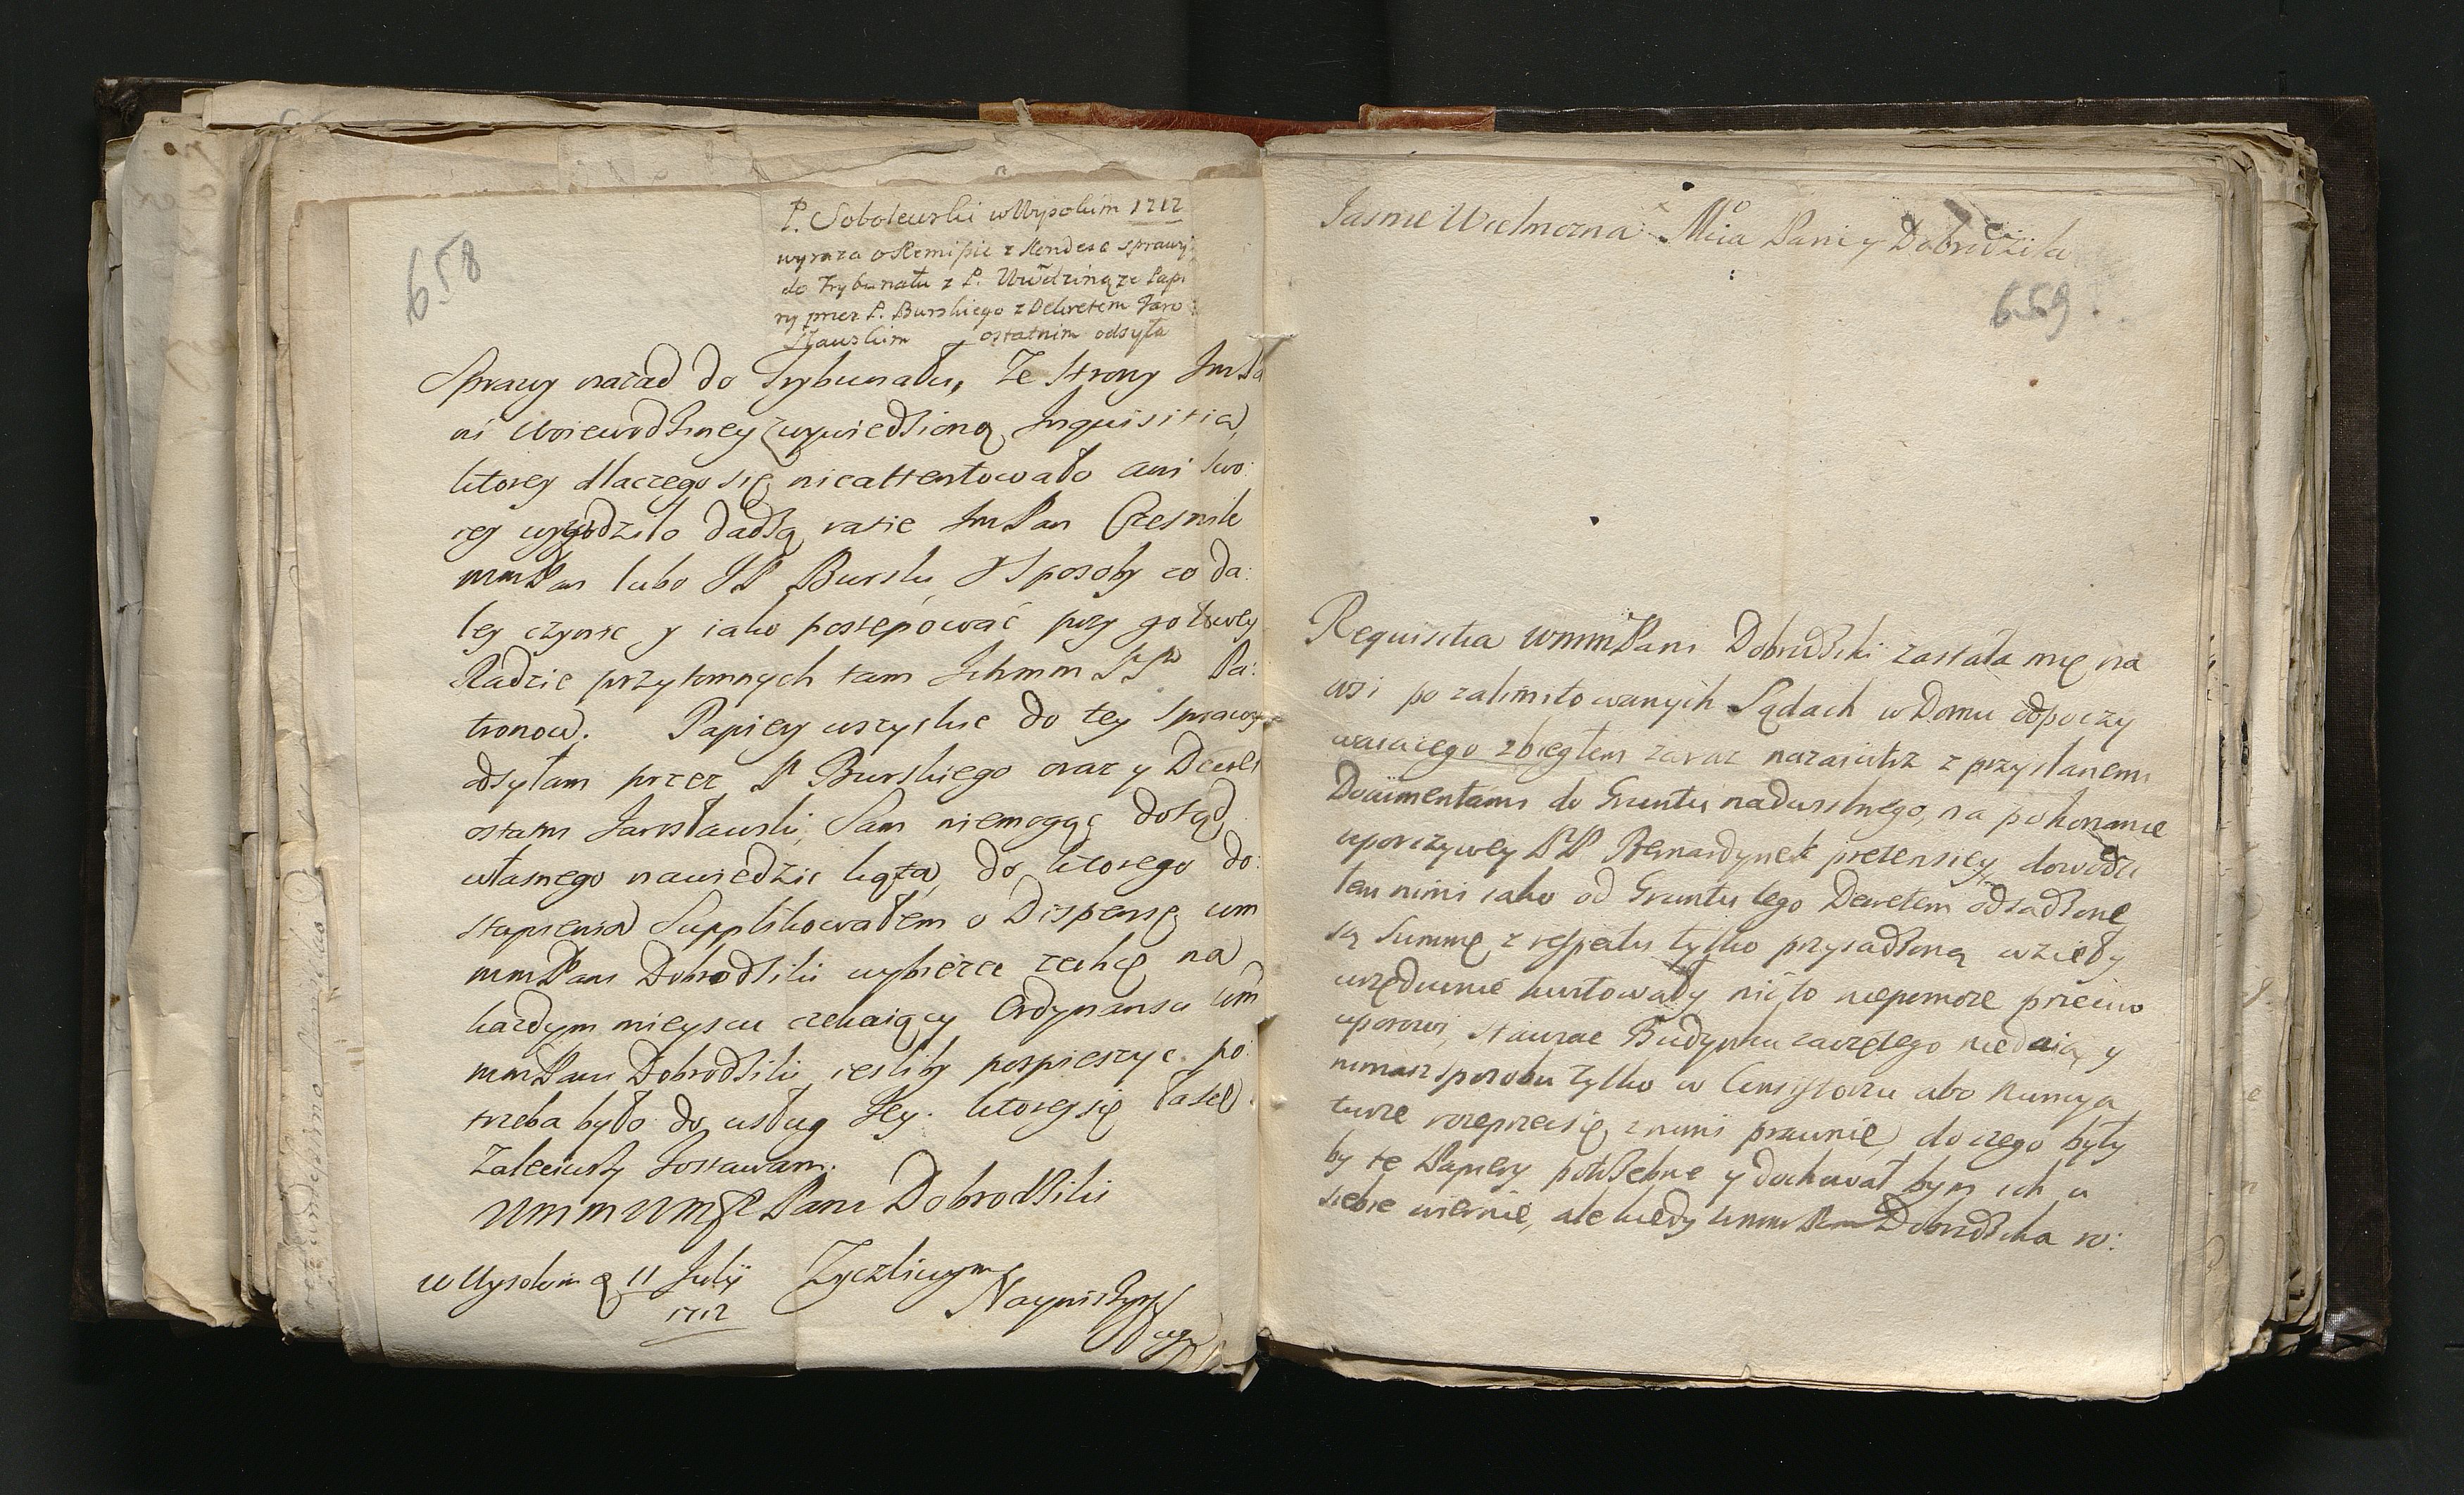 658
P. Sobolewski w Wysokim 1712
wyraza o Remissie z Kondesc sprawy
do Trybunału z P. Wwdziną ze Papi
ry przez P. Burskiego z Dekretem Jaro
sławskim ostatnim odsyła
Sprawy nazad do Trybunału, Ze strony ImPa
ni Woiewodziney wywiedzioną Inquisitią,
ktorey dlaczego się nieattentowało ani swo:
rey wywodziło dadzą racie ImPan Czesnik
mmPan lubo JP Burski, y sposoby co da:
ley czynic y iako postępować przy gotowey
Radzie przytomnych tam Ichmm PP Pa:
tronow. Papiery wszystkie do tey sprawy
odsyłam przez P Burskiego oraz y Dekret
ostatni Jarosławski, Sam niemogąc dotąd
własnego nawiedzic kąta, do ktorego do:
stąpienia Supplikowałem o Dispensę wm
mmPani Dobrodziki wybierac zechcę na
kazdym mieyscu czekaiący Ordynansu wm
mmPani Dobrodziki, iesliby pospieszyc po:
trzeba było do usług Jey. ktorey się łasce
Zaleciwszy zostawam.
Wmm WmJX Pani Dobrodziki
w Wysokim d 11 Julij Zyczliwym
1712 Nayniższym
sługą
Jasnie Wielmozna Mcia Pani y Dobrodziko
659
Requisitia WmmPani Dobrodziki zastała mię na
wsi po zalimitowanych Sądach w Domu odpoczy
waiącego zbiegłem zaraz nazaiutrz z przysłanemi
Documentami do Gruntu nadwislnego, na pokonanie
uporczywey PP Bernardynek pretensiey, dowodzi
łem nimi iako od Gruntu tego Dekretem odsądzone
są Summę z respectu tylko przysądzoną wzieły
urzędownie kwitowały nic to niepomoze przeciwo
uporowi, stawiac Budynku zaczętego niedaią y
nimasz sposobu tylko w Consistorzu abo Nuncya
turze rozeprzec się z nimi prawnie, do czego były
by te Papiery potrzebne y dochował bym ich u
siebie wiernie, ale kiedy Wmm Pani Dobrodzika ro: